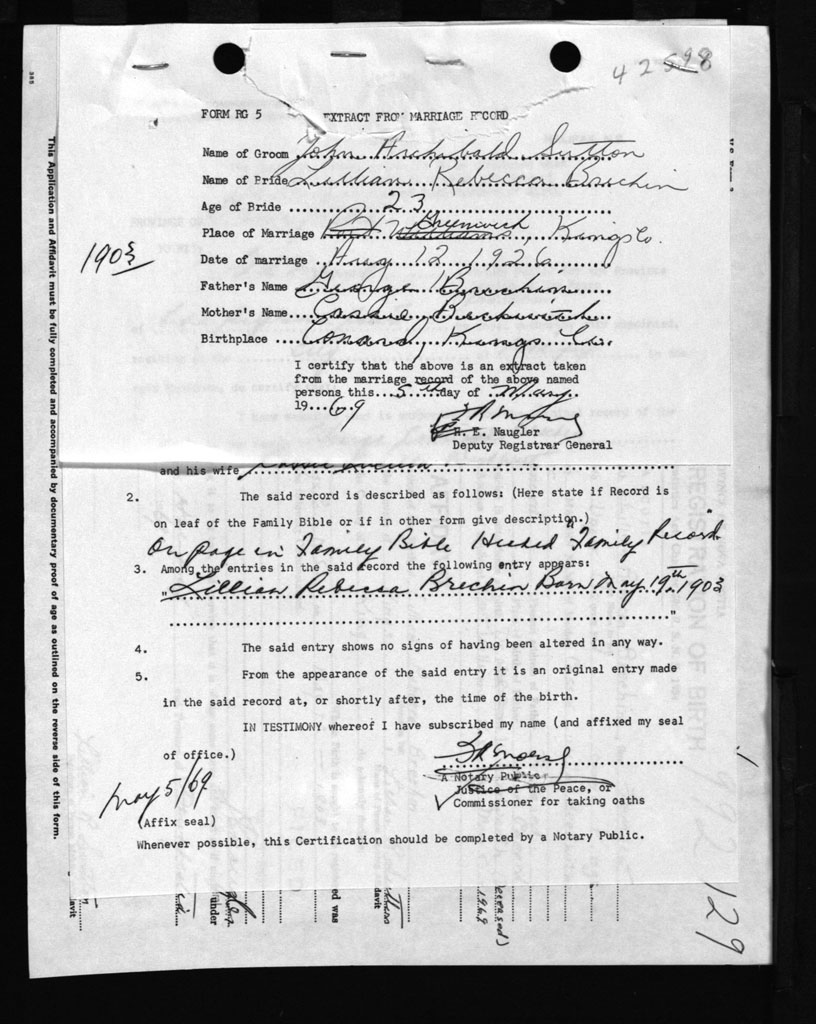 42598
FORM RG 5 EXTRACT FROM MARRIAGE RECORD
Name of Groom John Archibald Sutton
Name of Bride Lillian Rebecca Brechin
Age of Bride 23
Place of Marriage Port Williams Greenwich, Kings Co.
1903
Date of marriage Aug 12 1926
Father's Name George Brechin
Mother's Name Cassie Beckwith
Birthplace Canard, Kings Co.
I certify that the above is an extract taken
from the marriage record of the above named
persons this 5th day of May
1969
R. E. Naugler
Deputy Registrar General
and his wife
2. The said record is described as follows: (Here state if Record is
on leaf of the Family Bible or if in other form give description.)
On page in Family Bible Headed "Family Record"
3. Among the entries in the said record the following entry appears:
"Lillian Rebecca Brechin Born May 19th 1903
"
4. The said entry shows no signs of having been altered in any way.
5. From the appearance of the said entry it is an original entry made
in the said record at, or shortly after, the time of the birth.
IN TESTIMONY whereof I have subscribed my name (and affixed my seal
of office.)
A Notary Public
Justice of the Peace, or
Commissioner for taking oaths
May 5/69
(Affix seal)
Whenever possible, this Certification should be completed by a Notary Public.
This Application and Affidavit must be fully completed and accompanied by documentary proof of age as outlined on the reverse side of this form.
REGISTRATION OF BIRTH
129
ed was
davit
under
1969